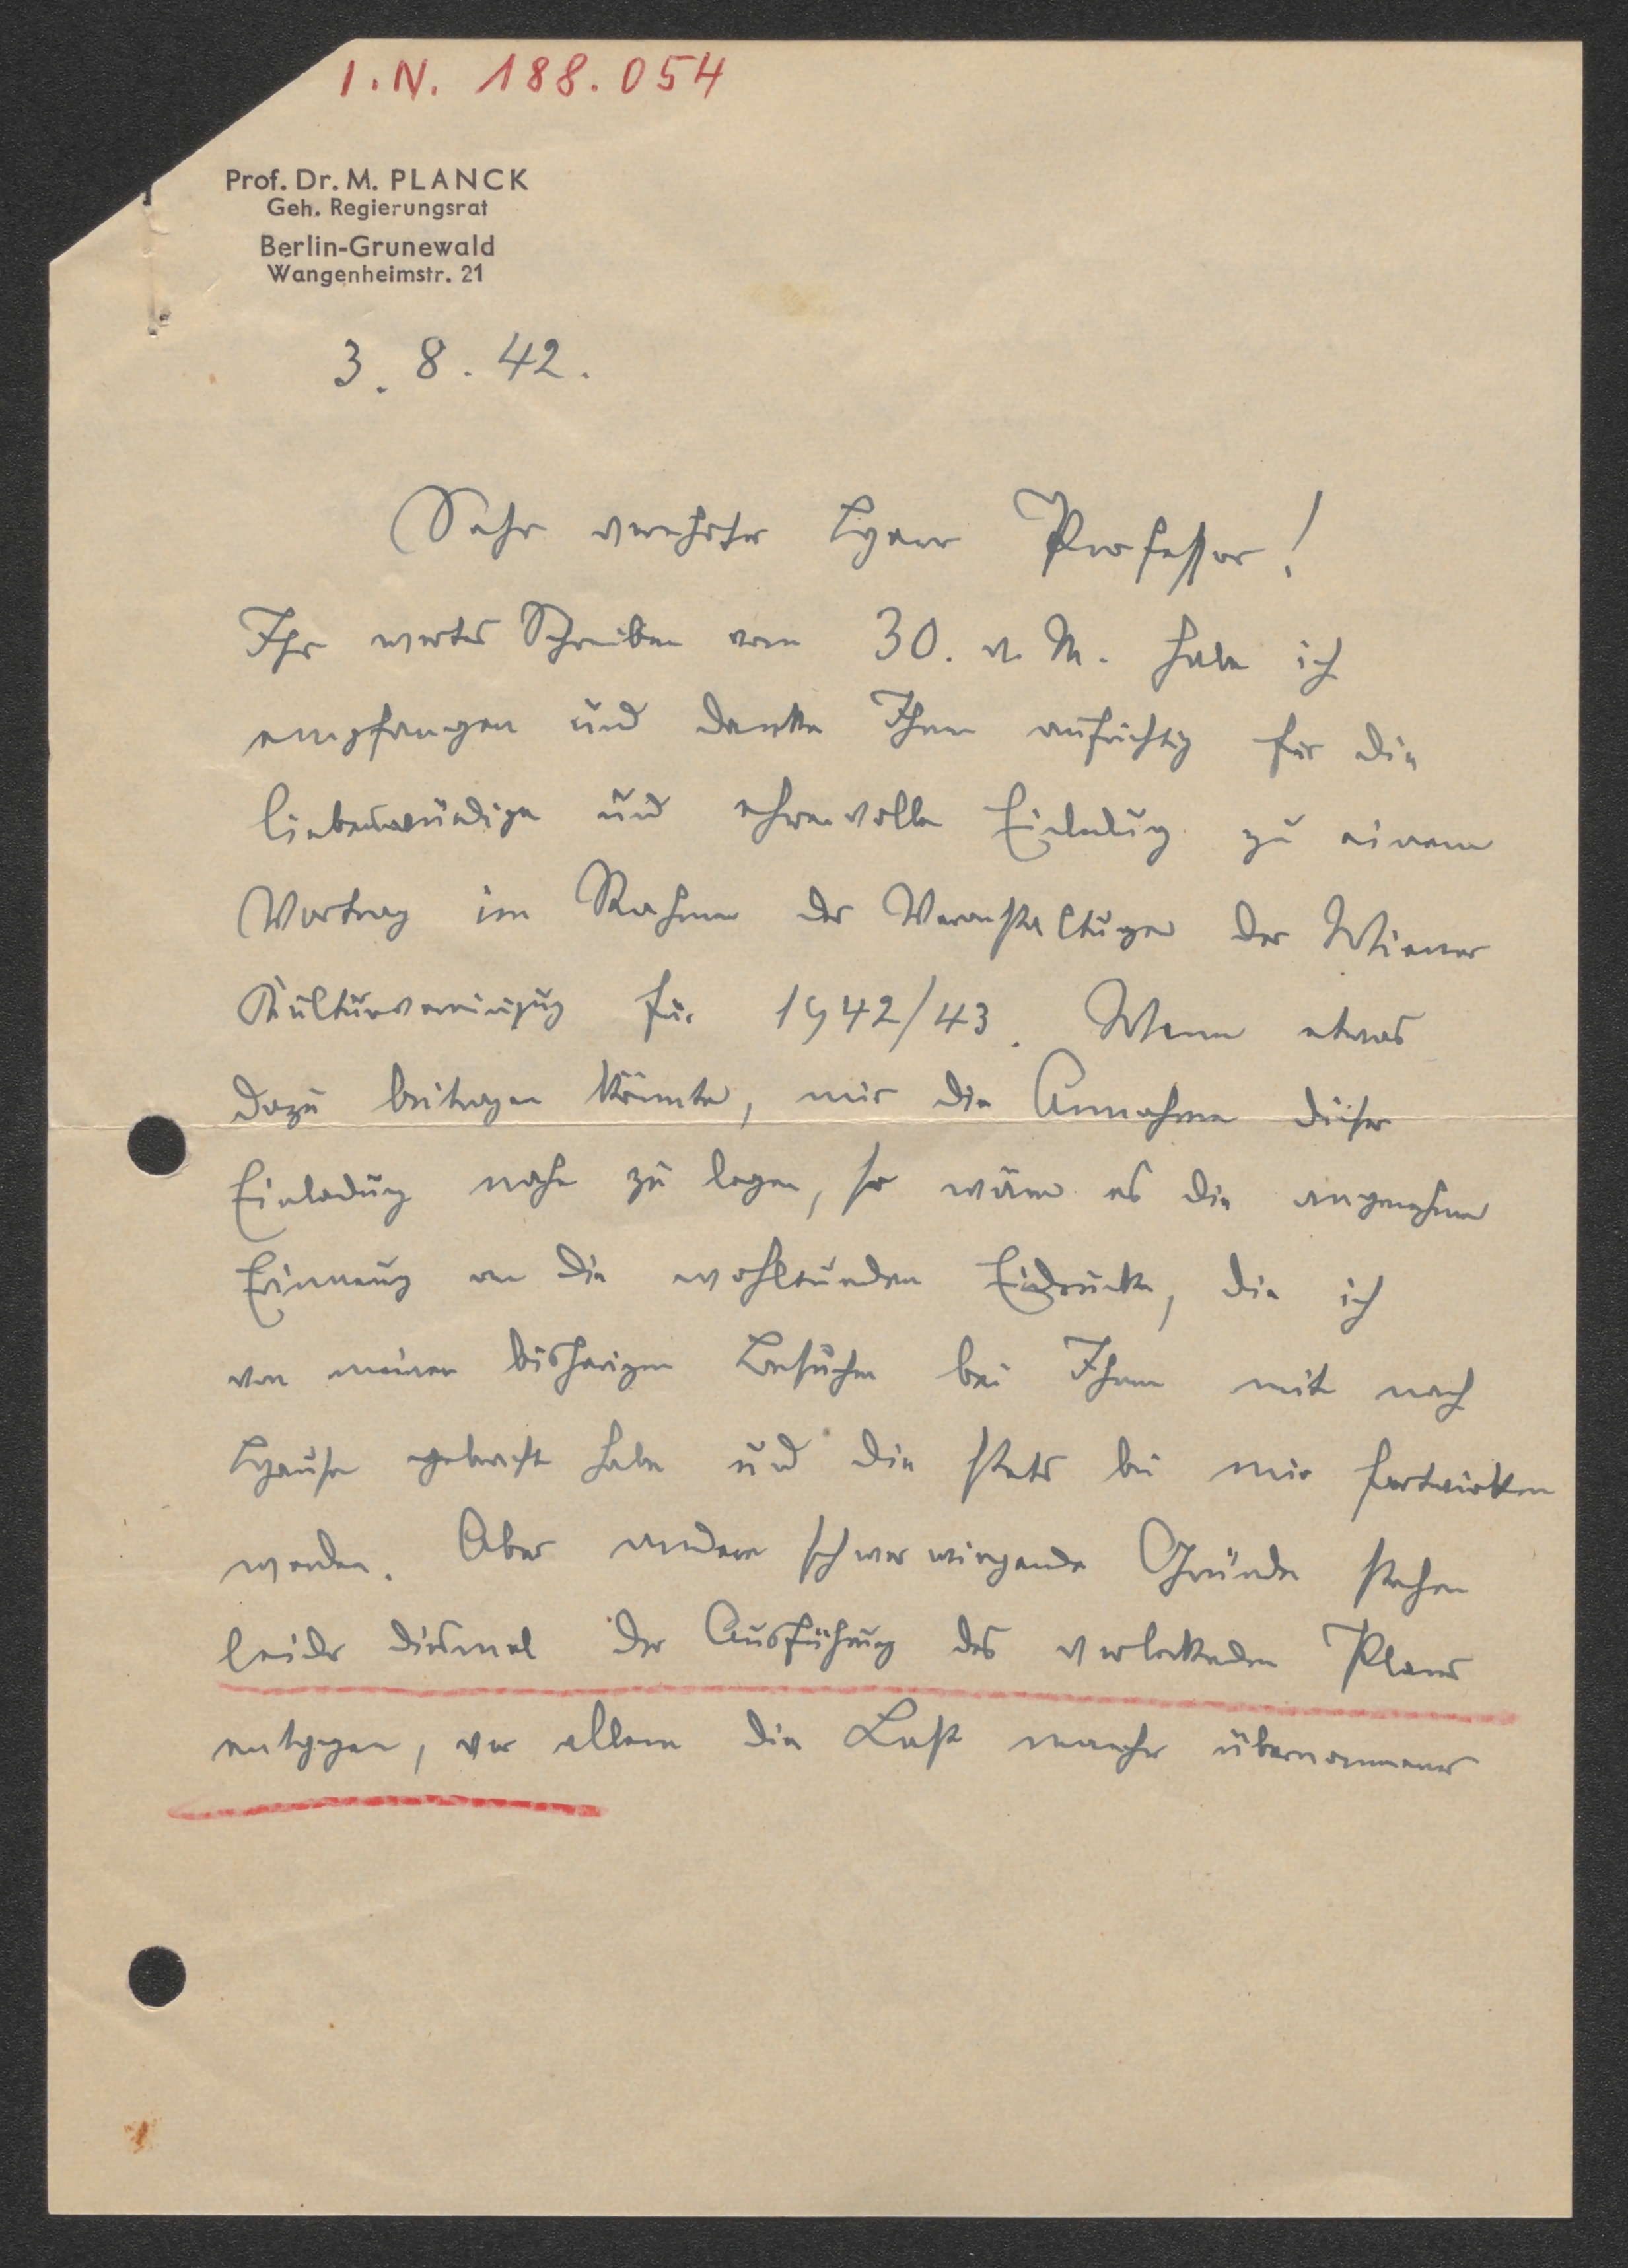 I.N. 188.054
Prof. Dr. M. PLANCK
Geh. Regierungsrat
Berlin-Grunewald
Wangenheimstr. 21
3. 8. 42.
Sehr verehrter Herr Professor!
Ihr wertes Schreiben vom 30. v. M. habe ich
empfangen und danke Ihnen aufrichtig für die
liebenswürdige und ehrenvolle Einladung zu einem
Vortrag im Rahmen der Veranstaltungen der Wiener
Kulturvereinigung für 1942/43. Wenn etwas
dazu beitragen könnte, mir die Annahme dieser
Einladung nahe zu legen, so wäre es die angenehme
Erinnerung an die wohltuenden Eindrücke, die ich
von meinen bisherigen Besuchen bei Ihnen mit nach
Hause gebracht habe und die stets bei mir fortwirken
werden. Aber andere schwer wiegende Gründe stehen
leider diesmal der Ausführung des verlockenden Planes
entgegen, vor allem die Last mancher übernommener